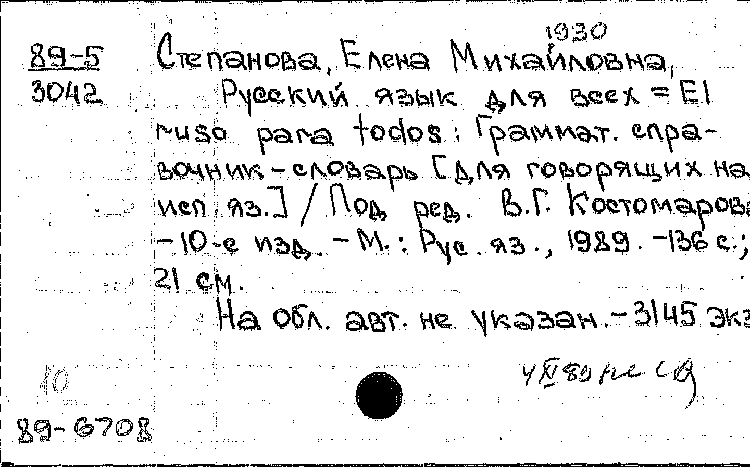 1930
89-5 Степанова, Елена Михайловна,
3042 Русский язык для всех = El
ruso para todos: Граммат. спра-
вочник-словарь [для говорящих на
исп. яз.] / Под ред. В.Г. Костомарова
-10-е изд. - М.: Рус. яз., 1989. -136 с.;
21 см.
На обл. авт. не указан. - 3145 экз
10
89-6708